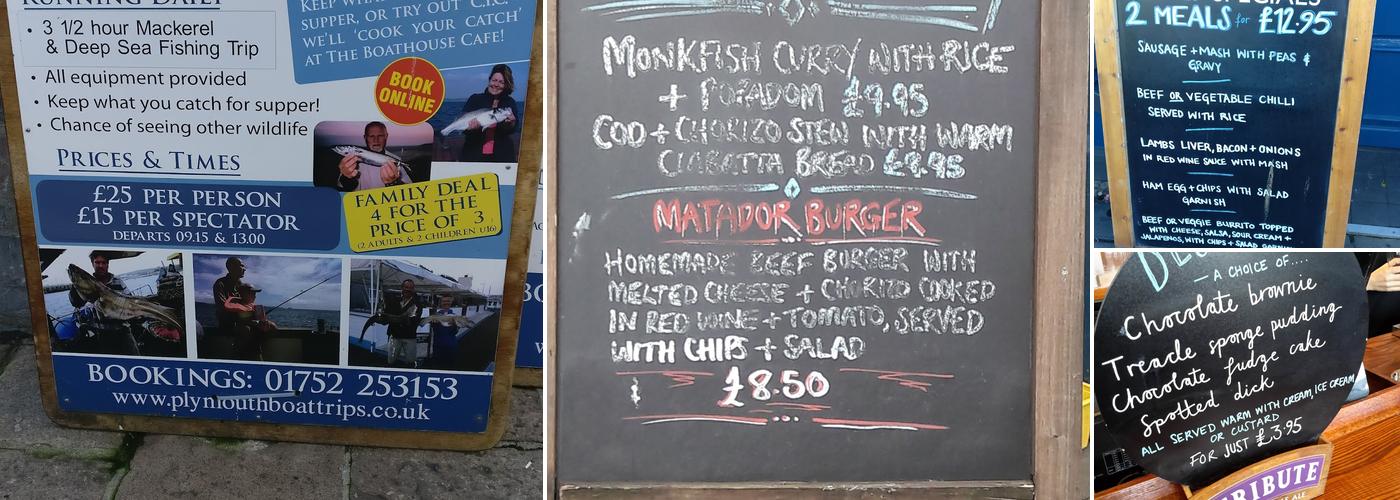 RUNNING DAILY
• 3 1/2 hour Mackerel
& Deep Sea Fishing Trip
• All equipment provided
• Keep what you catch for supper!
• Chance of seeing other wildlife
SUPPER, OR TRY OUT C.I.C.
WE'LL 'COOK YOUR CATCH'
AT THE BOATHOUSE CAFE!
BOOK
ONLINE
PRICES & TIMES
£25 PER PERSON
£15 PER SPECTATOR
DEPARTS 09.15 & 13.00
FAMILY DEAL
4 FOR THE
PRICE OF 3
(2 ADULTS & 2 CHILDREN U16)
BOOKINGS: 01752 253153
www.plymouthboattrips.co.uk
MONKFISH CURRY WITH RICE
+ POPADOM £9.95
COD + CHORIZO STEW WITH WARM
CIABATTA BREAD £9.95
MATADOR BURGER
HOMEMADE BEEF BURGER WITH
MELTED CHEESE + CHORIZO COOKED
IN RED WINE + TOMATO, SERVED
WITH CHIPS + SALAD
£8.50
SPECIALS
2 MEALS for £12.95
SAUSAGE + MASH WITH PEAS &
GRAVY
BEEF OR VEGETABLE CHILLI
SERVED WITH RICE
LAMBS LIVER, BACON + ONIONS
IN RED WINE SAUCE WITH MASH
HAM EGG + CHIPS WITH SALAD
GARNISH
BEEF OR VEGGIE BURRITO TOPPED
WITH CHEESE, SALSA, SOUR CREAM +
JALAPENOS, WITH CHIPS + SALAD GARNISH
A CHOICE OF....
Chocolate brownie
Treacle sponge pudding
Chocolate fudge cake
Spotted dick
ALL SERVED WARM WITH CREAM, ICE CREAM
OR CUSTARD
FOR JUST £3.95
TRIBUTE